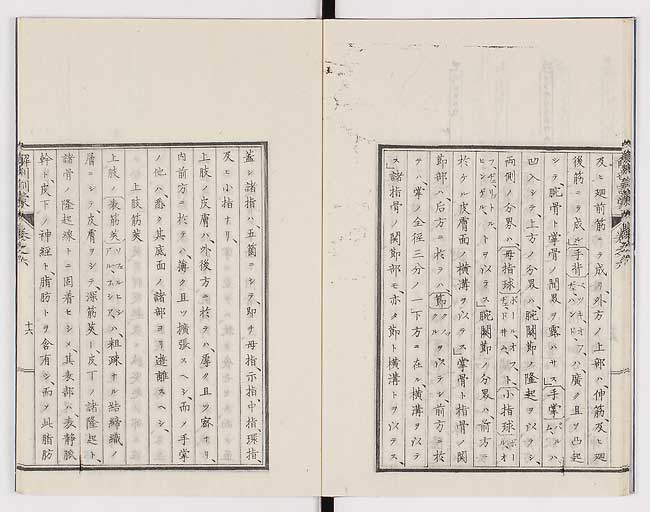 及ヒ廻前筋ニテ成リ外方ノ上部ハ伸筋及ヒ廻
後筋ニテ成ル「手背ハ廣ク且ツ凸起
シテ腕骨ト掌骨ノ間界ヲ露ハサス「手掌ハ
凹入シテ上方ノ分界ハ腕關節ノ隆起ヲ以テシ
兩側ノ分界ハ「母指球「小指球
トヲ以テス」腕關節ノ分界ハ前方ニ
於テハ皮膚面ノ橫溝ヲ以テス」掌骨ト指骨ノ關
節部ハ后方ニ於テハ「節ヲ以テシ前方ニ於
テハ掌ノ全徑三分ノ一下方ニ在ル橫溝ヲ以テ
ス」諸指骨ノ關節部モ亦タ節ト橫溝トヲ以テス
蓋シ諸指ハ五箇ニシテ即チ母指示指中指環指
及ヒ小指ナリ
上肢ノ皮膚ハ外後方ニ於テハ厚ク且ツ密ナリ
内前方ニ於テハ薄ク且ツ擴張スヘシ而シテ手掌
ノ他ハ悉ク其底面ノ諸部ヨリ遊離スヘシ
上肢筋莢
上肢ノ「表筋莢ハ粗疎ナル結締織ノ
層ニシテ皮膚ヲシテ深筋莢ト皮下ノ諸隆起ト
諸骨ノ隆起線トニ固着セシメ其表部ハ表靜脈
幹ト皮下ノ神經ト脂肪トヲ含有シ而シテ此脂肪
解剖訓蒙
卷之六
十六